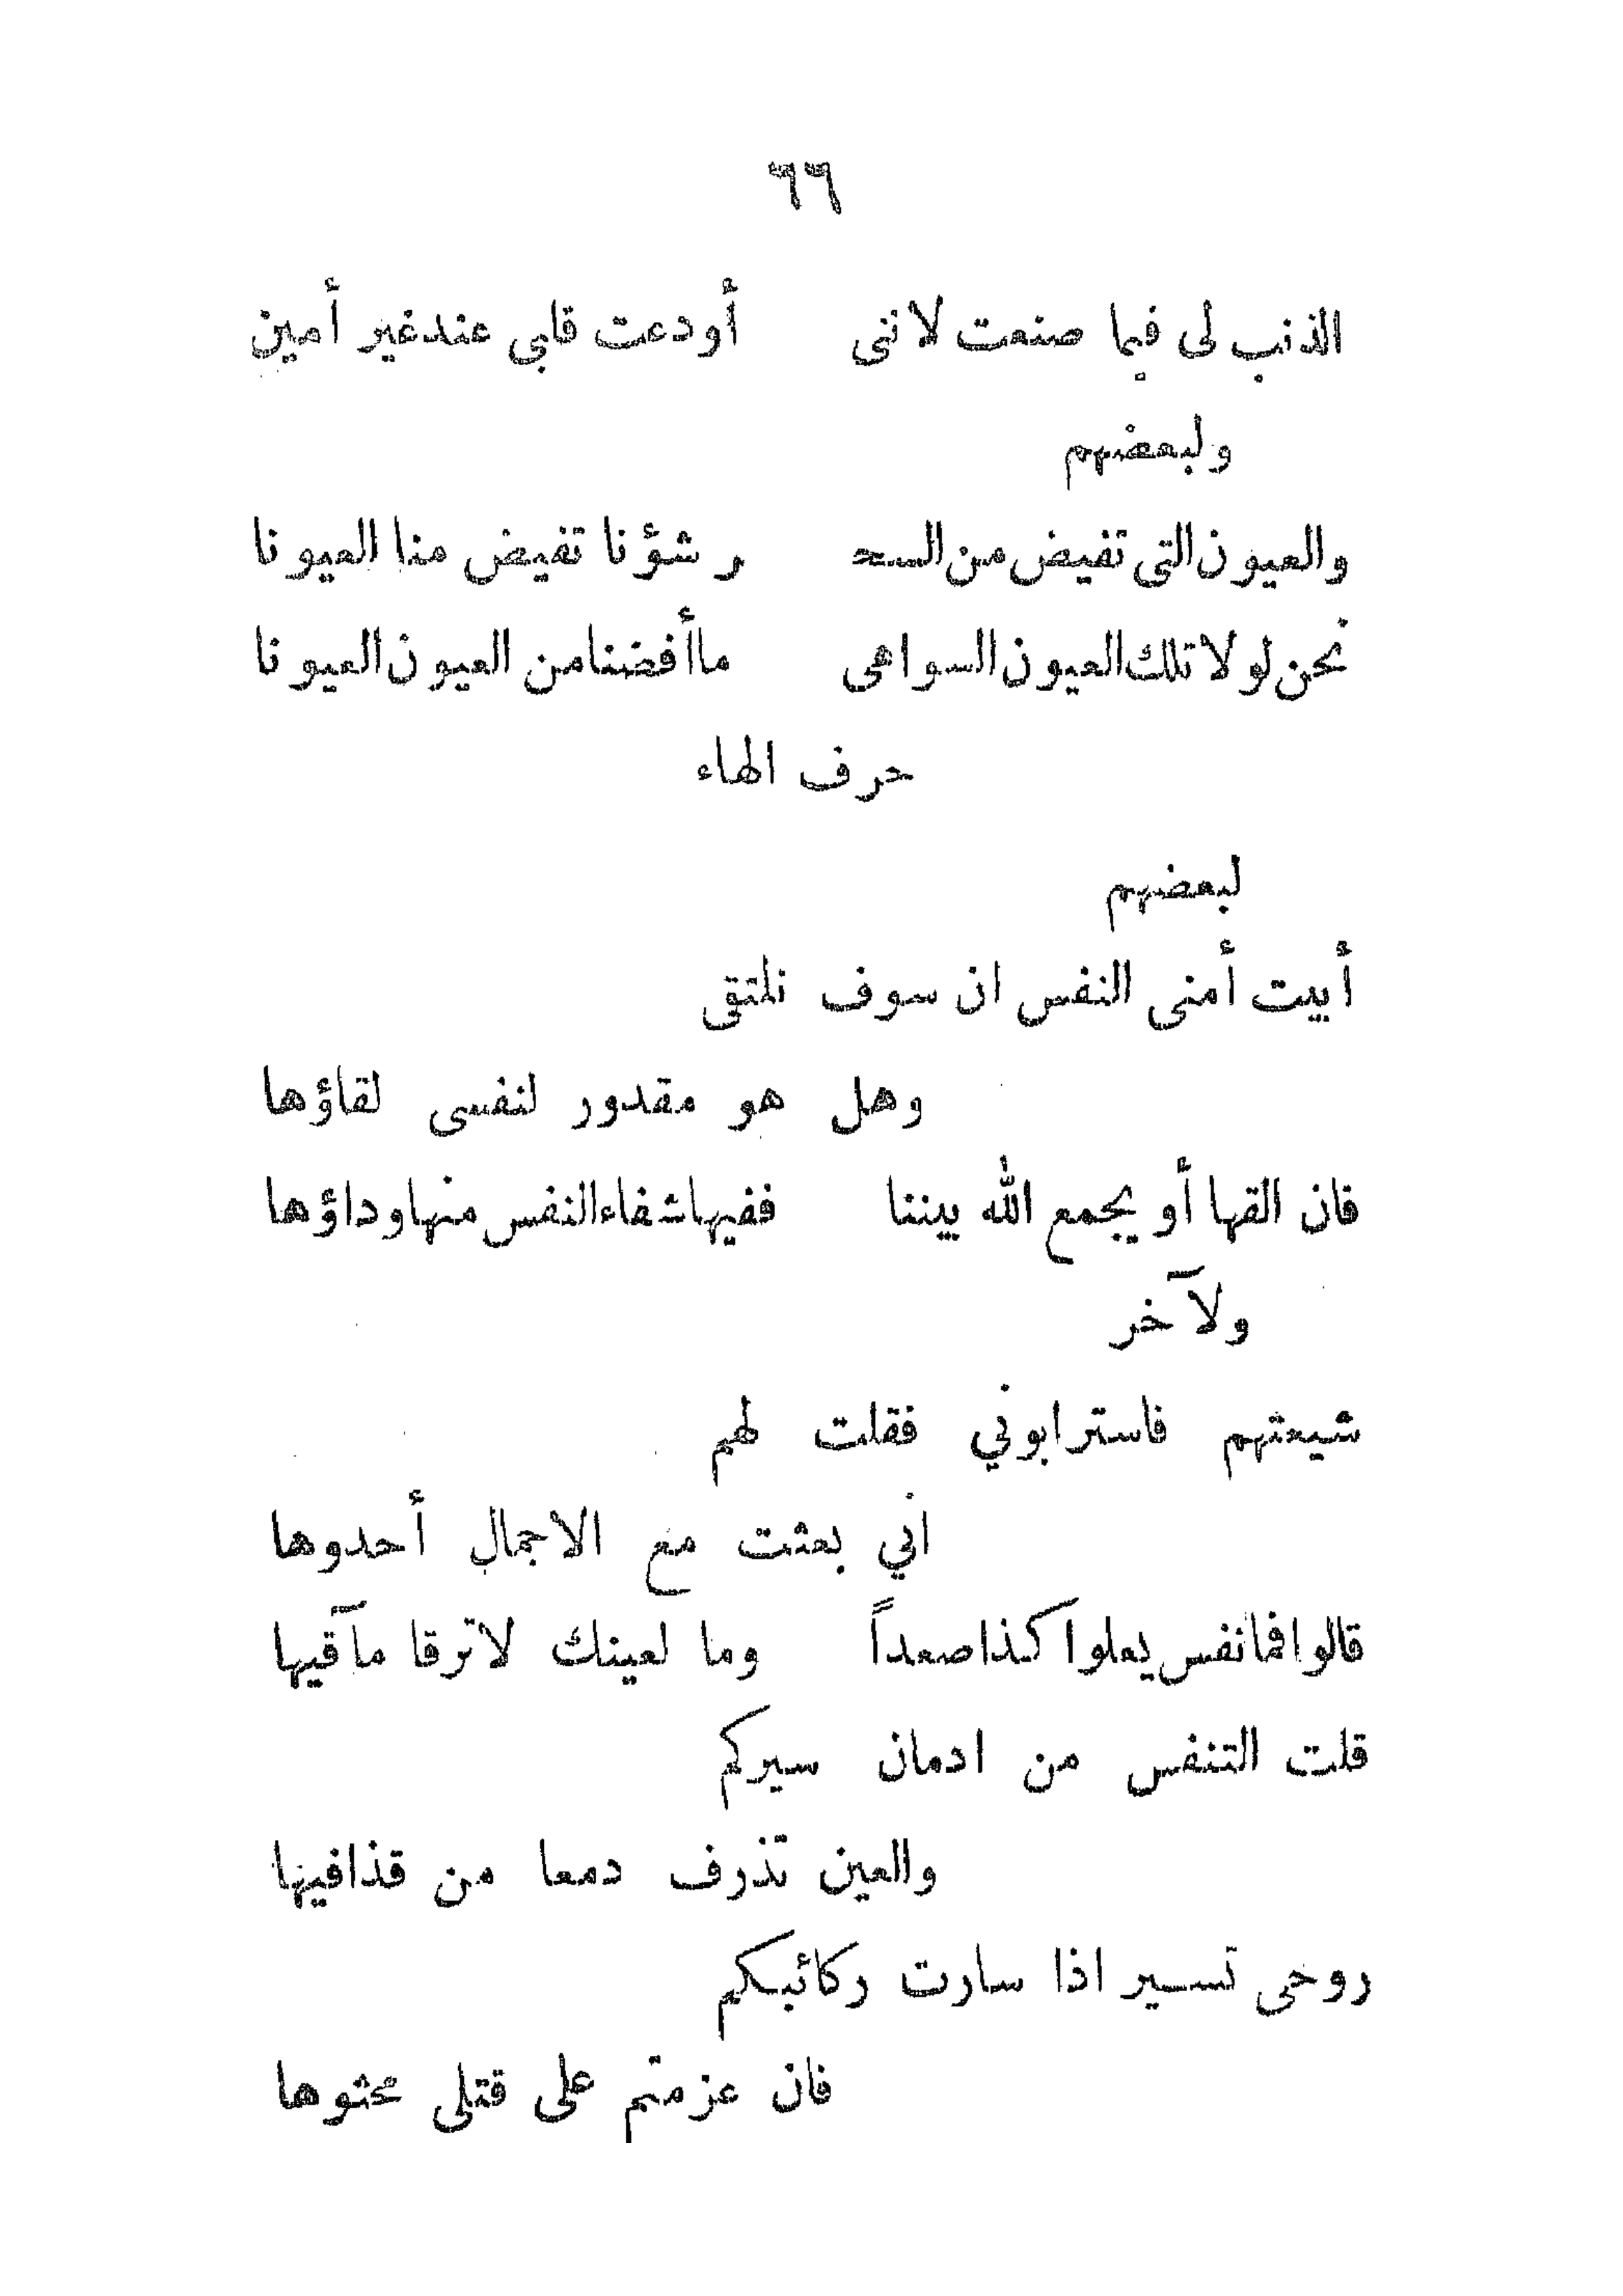 ٦٦
الذنب لى فيما صنعت لاننى أودعت قلبى عند غير أمين
ولبعضهم
والعيون التى تفيض من السحـ ـر شؤنا تفيض منا العيونا
نحن لولا تلك العيون السواهى ماأفضنا من العيون العيونا
حرف الهاء
لبعضهم
أبيت أمنى النفس ان سوف نلتقى
وهل هو مقدور لنفسى لقاؤها
فان القها أو يجمع الله بيننا ففيها شفاء النفس منها وداؤها
ولآخر
شيعتهم فاسترابوني فقلت لهم
اني بعثت مع الاجمال أحدوها
قالوا فما نفس يعلوا كذا صعداً وما لعينك لا ترقا مآقيها
قلت التنفس من ادمان سيركم
والعين تذرف دمعا من قذافيها
روحى تسير اذا سارت ركائبكم
فان عزمتم على قتلى فحثوها